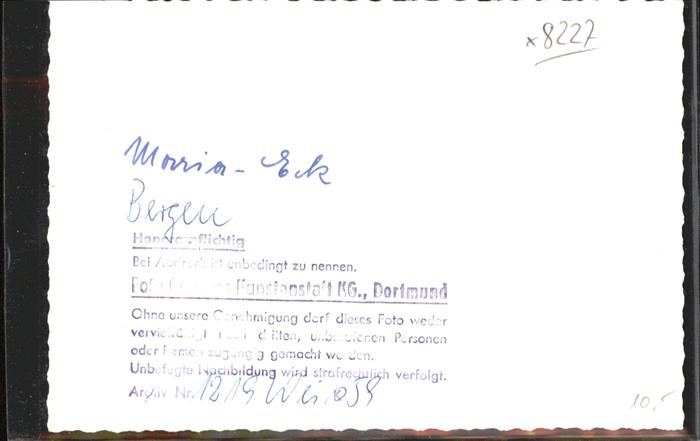 x8227
Maria-Eck
Bergen
Honorarpflichtig
Bei Abdruck ist unbedingt zu nennen.
Foto Kunstanstalt KG., Dortmund
Ohne unsere Genehmigung darf dieses Foto weder
vervielfältigt noch dritten, unberufenen Personen
oder Firmen zugängig gemacht werden.
Unbefugte Nachbildung wird strafrechtlich verfolgt.
Archiv Nr. 1219
10,-